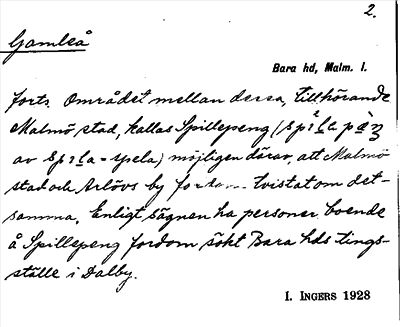 2.
Gamlså
Bara hd, Malm. l.
forts. Området mellan dessa, tillhörande
Malmö stad, kallas Spillepeng (
av = spela) möjligen därav, att Malmö
stad och Arlövs by tvistat om det-
samma. Enligt sägnen ha personer boende
å Spillepeng fordom sökt Bara hds tings-
ställe i Dalby.
I. INGERS 1928